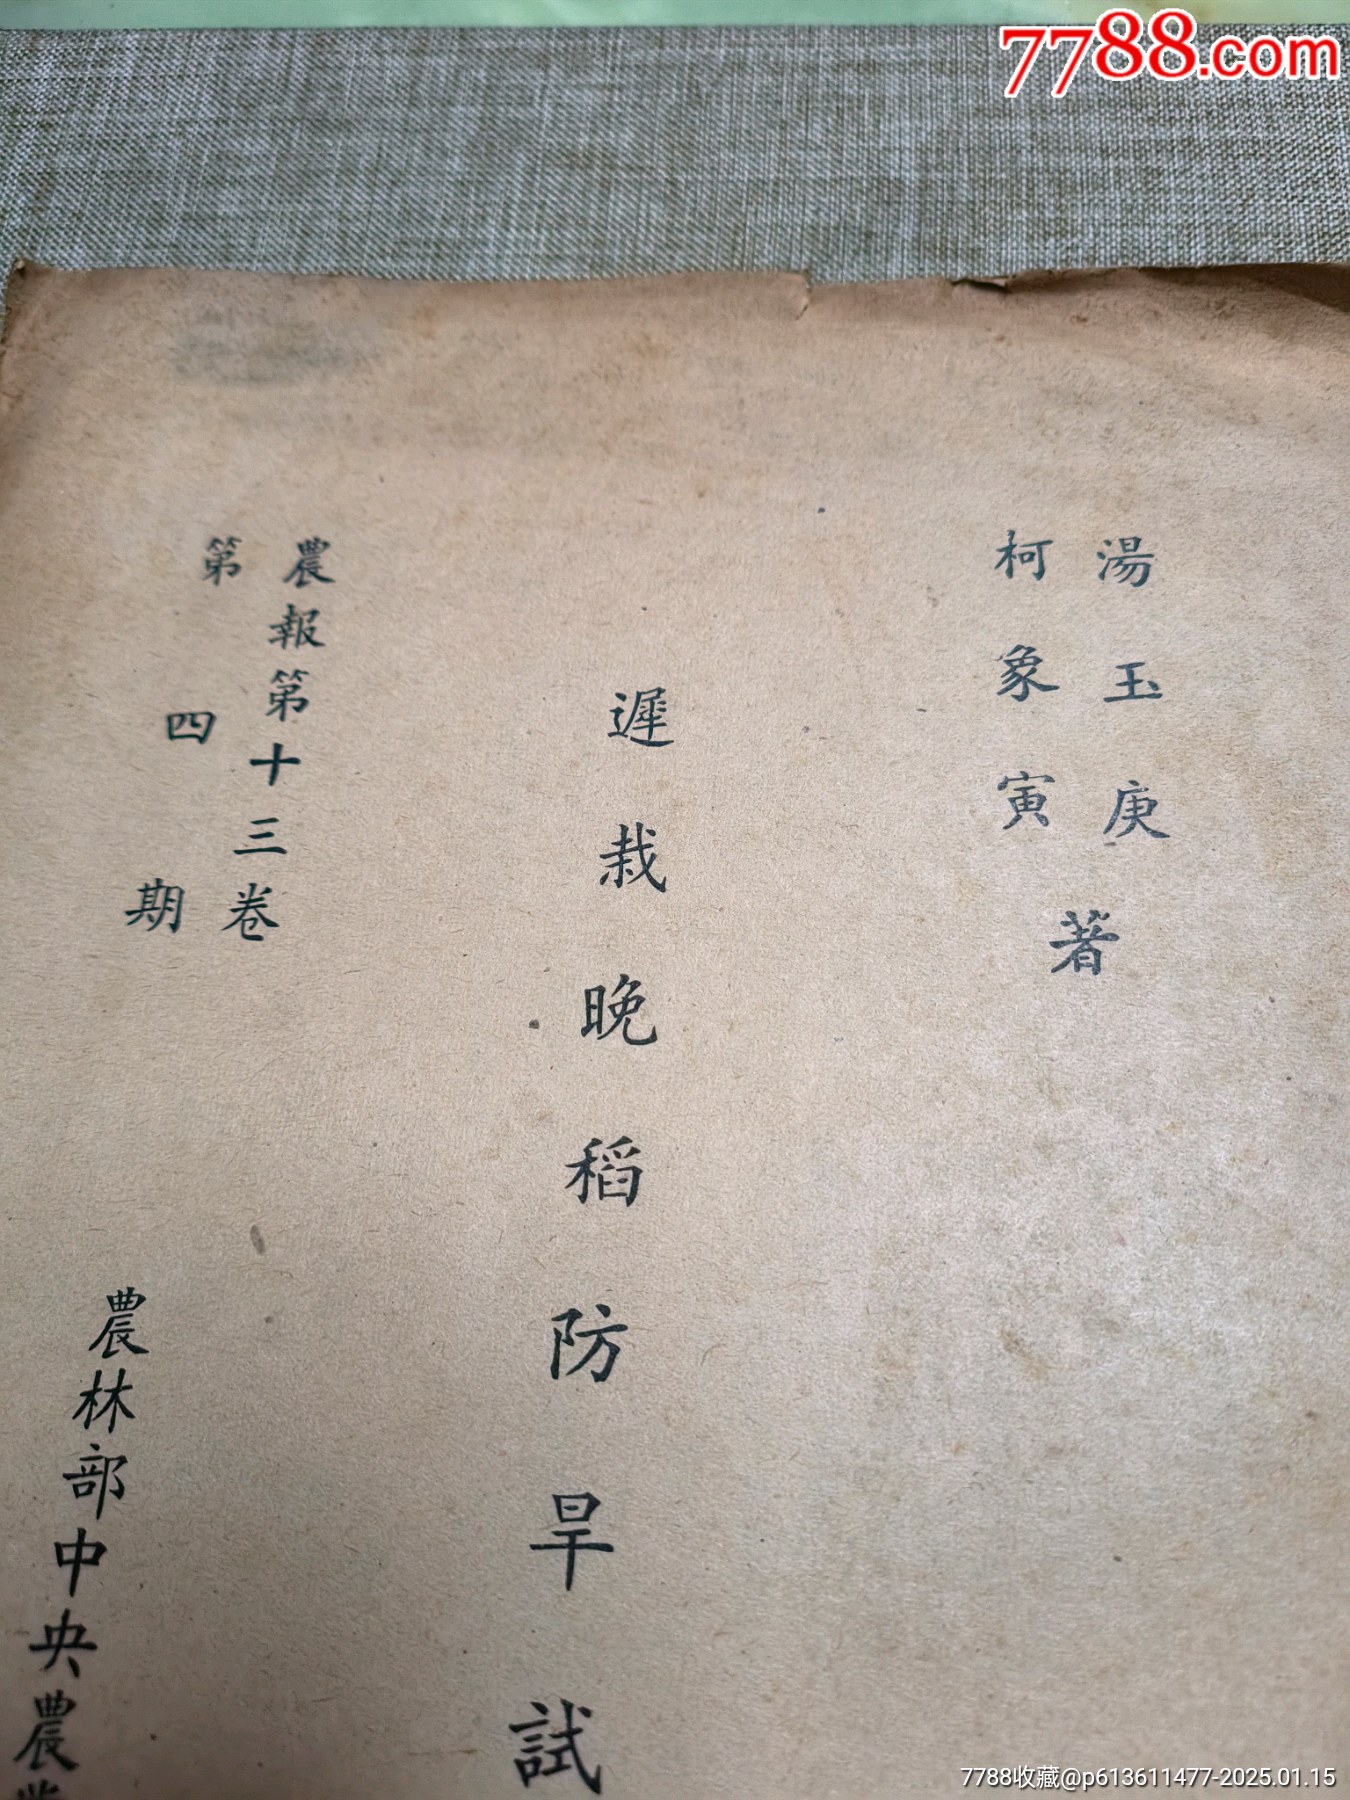 7788.com
湯玉庚
柯象寅
著
遲栽晚稻防旱試
農報第十三卷
第四期
農林部中央農業
7788收藏@p613611477-2025.01.15